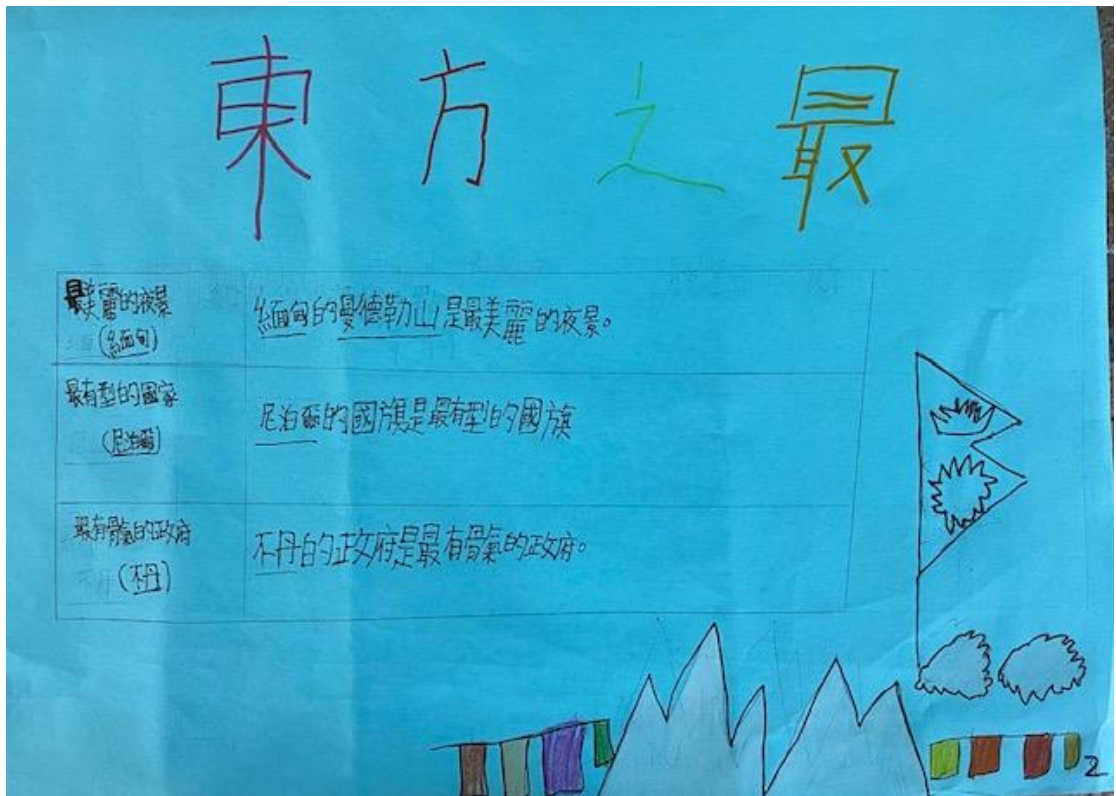 東方之最
最美麗的夜景
(緬甸)
緬甸的曼德勒山是最美麗的夜景。
最有型的國家
(尼泊爾)
尼泊爾的國旗是最有型的國旗
最有骨氣的政府
(不丹)
不丹的政府是最有骨氣的政府。
2